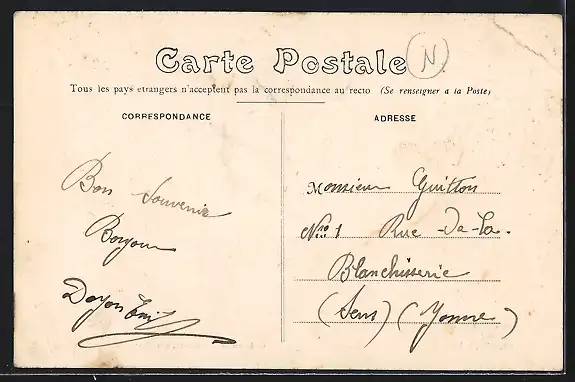 Carte Postale N
Tous les pays étrangers n'acceptent pas la correspondance au recto (Se renseigner à la Poste)
CORRESPONDANCE
Bon Souvenir
Bonjour
ADRESSE
Monsieur Guitton
Nro 1 Rue-De-La-
Blanchisserie
(Sens) (Yonne)